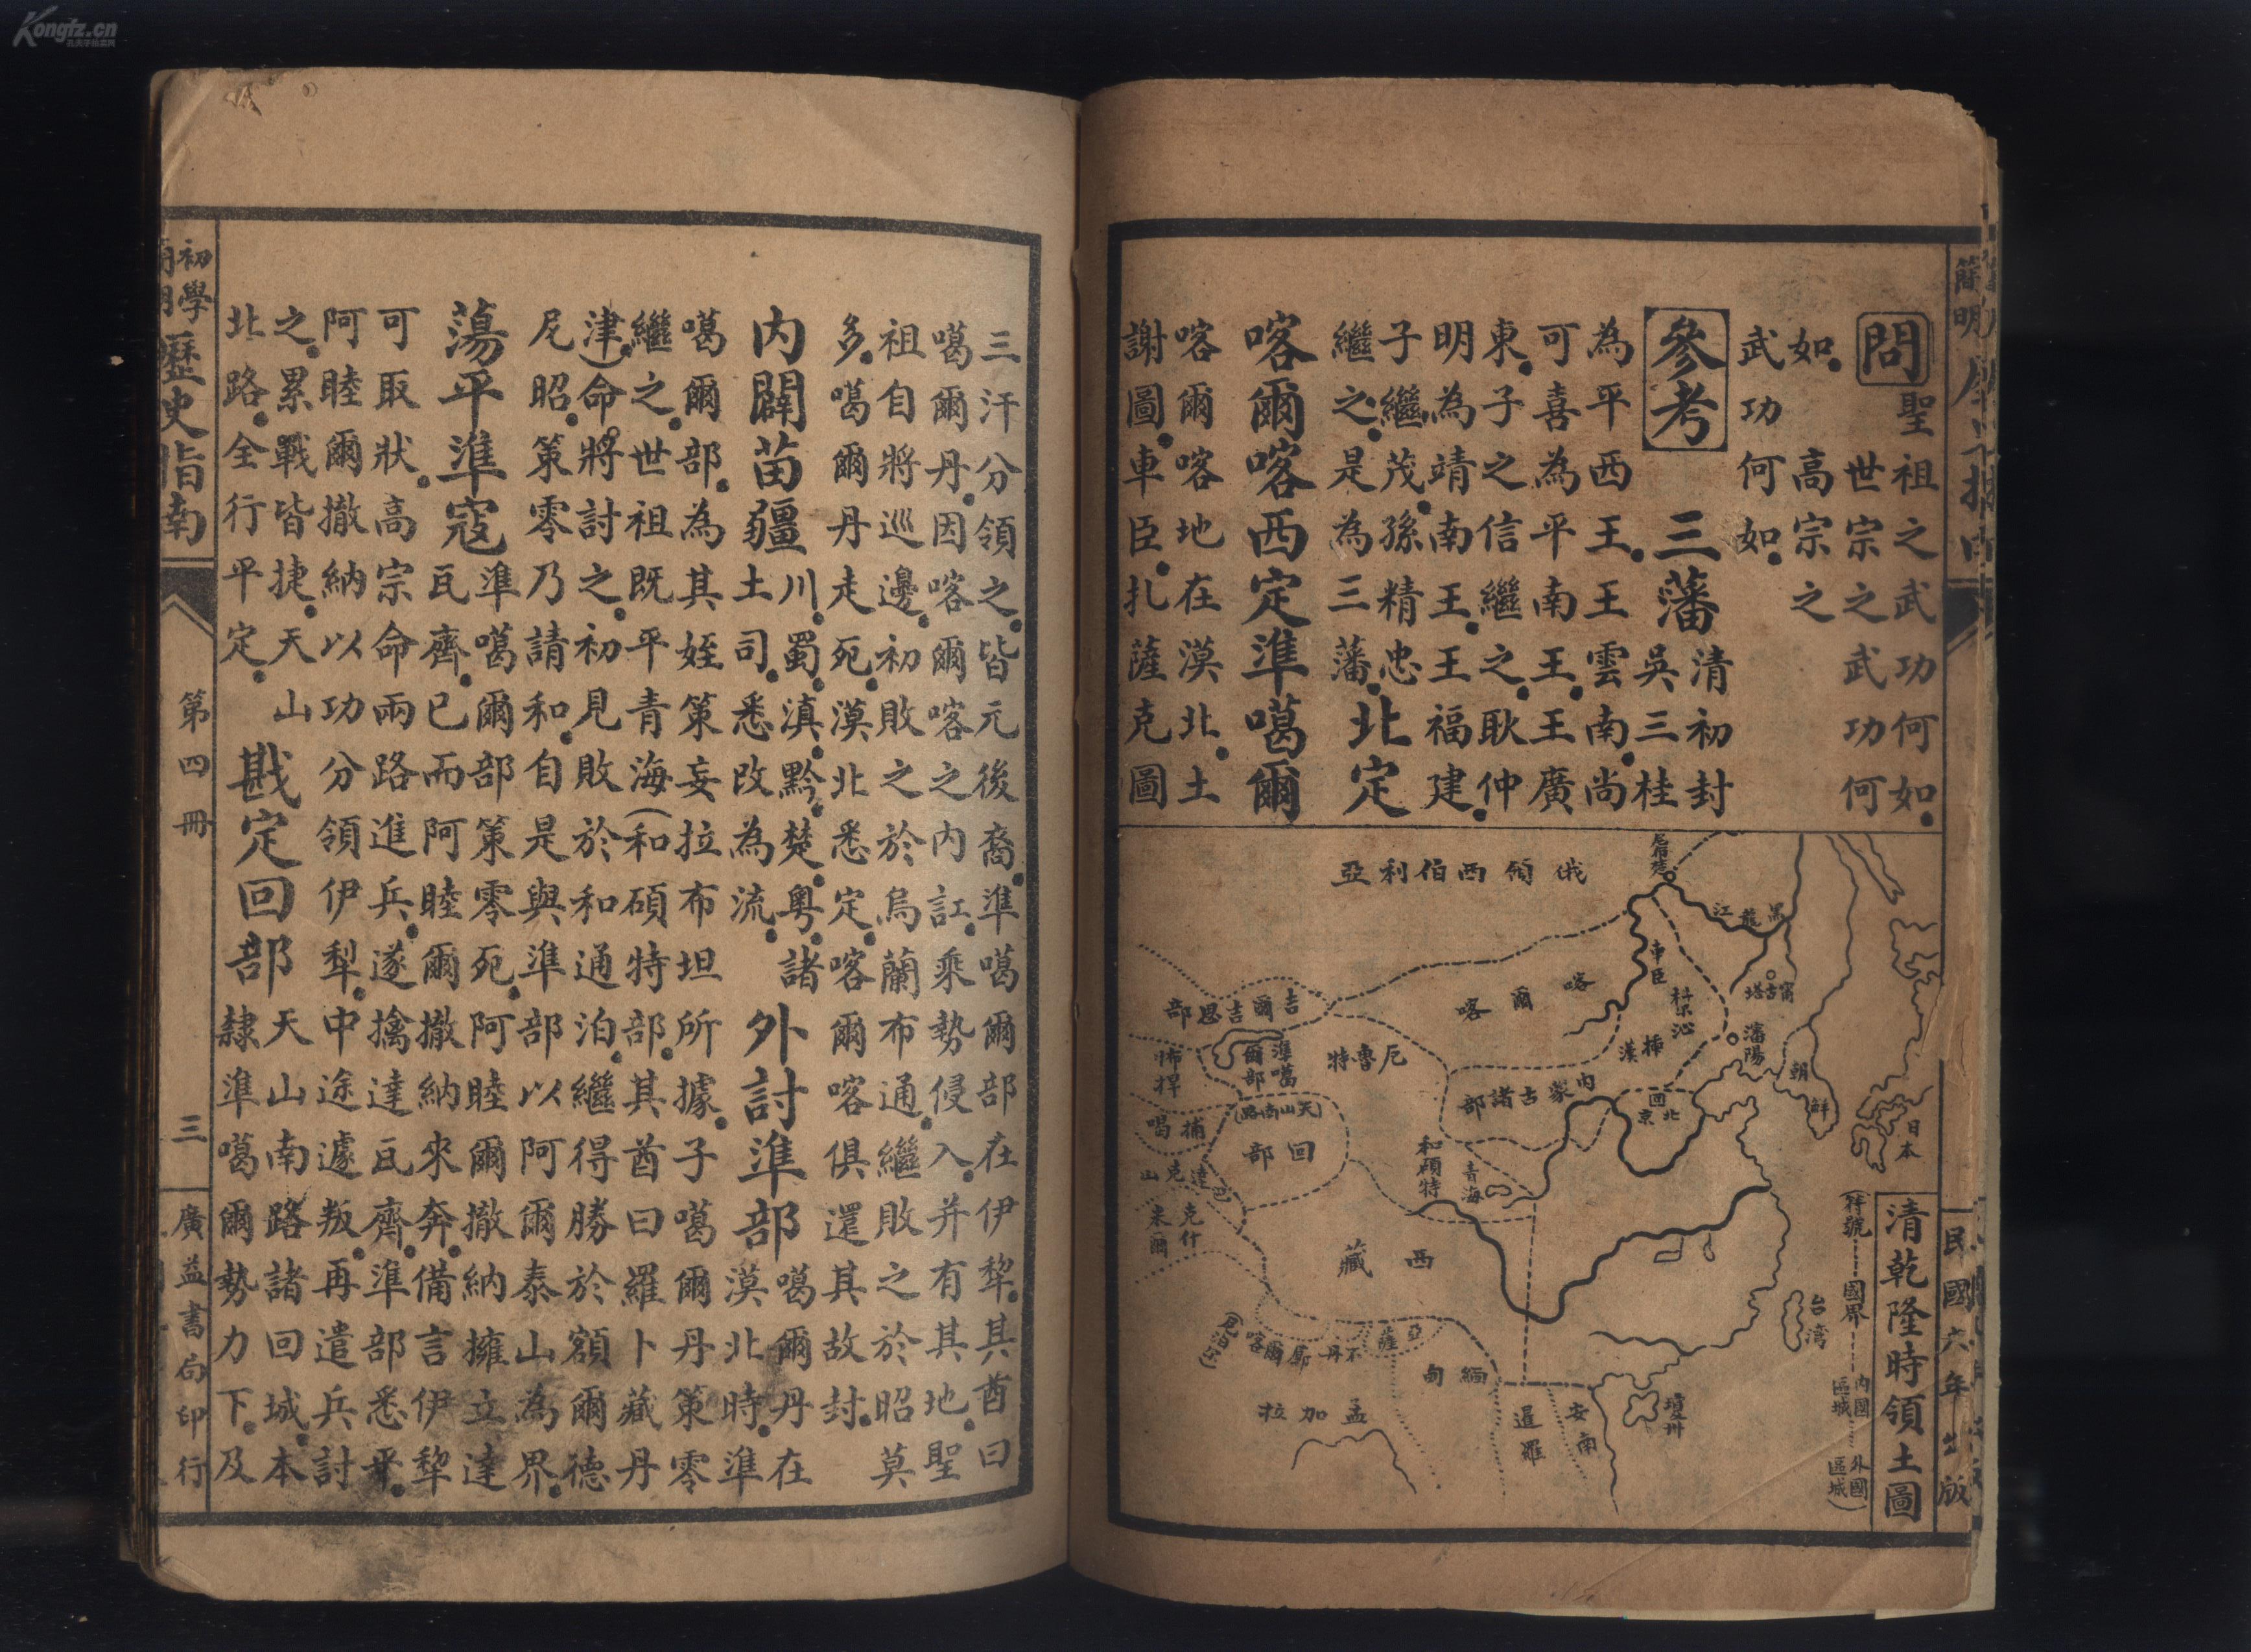 簡明
問 聖祖之武功何如。
世宗之武功何
如。 高宗之
武功何如。
參考 三藩 清初封
吳三桂
為平西王。王雲南。尚
可喜為平南王。王廣
東。子之信繼之。耿仲
明為靖南王。王福建。
子繼茂。孫精忠
繼之。是為三藩。 北定
喀爾喀西定準噶爾
喀爾喀地在漠北。土
謝圖。車臣。扎薩克圖
民國六年出版
清乾隆時領土圖
(符號 國界 內國區域 外國區域)
俄領西伯利亞
尼布楚
黑龍江
車臣
喀爾喀
科尔沁
甯古塔
瀋陽
插漢
朝鮮
日本
吉爾吉思部
準噶爾部
厄魯特
內蒙古諸部
北京
布捍
(天山南路)
回部
捕喝
巴達克山
克什米爾
和碩特
青海
西藏
台灣
(尼泊尔)
廓爾喀
不丹
亞薩
緬甸
孟加拉
暹羅
安南
瓊州
三汗分領之。皆元後裔。準噶爾部在伊犂。其酋曰
噶爾丹。因喀爾喀之內訌。乘勢侵入。并有其地。聖
祖自將巡邊。初敗之於烏蘭布通。繼敗之於昭莫
多。噶爾丹走死。漠北悉定。喀爾喀俱還其故封。
內闢苗疆 川。蜀。滇。黔。楚。粵。諸
土司。悉改為流。 外討準部 噶爾丹在
漠北時。準
噶爾部。為其姪策妄拉布坦所據。子噶爾丹策零
繼之。世祖既平青海(和碩特部。其酋曰羅卜藏丹
津)命將討之。初見敗於和通泊。繼得勝於額爾德
尼昭。策零乃請和。自是與準部以阿爾泰山為界。
蕩平準寇 準噶爾部策零死。阿睦爾撤納擁立達
瓦齊。已而阿睦爾撤納來奔。備言伊犂
可取狀。高宗命兩路進兵。遂擒達瓦齊。準部悉平。
阿睦爾撤納以功分領伊犂。中途遽叛。再遣兵討
之。累戰皆捷。天山
北路。全行平定。 戡定回部 天山南路諸回城。本
隸準噶爾勢力下。及
初學簡明歷史指南
第四冊
三
廣益書局印行
Kongfz.cn
孔夫子旧书网